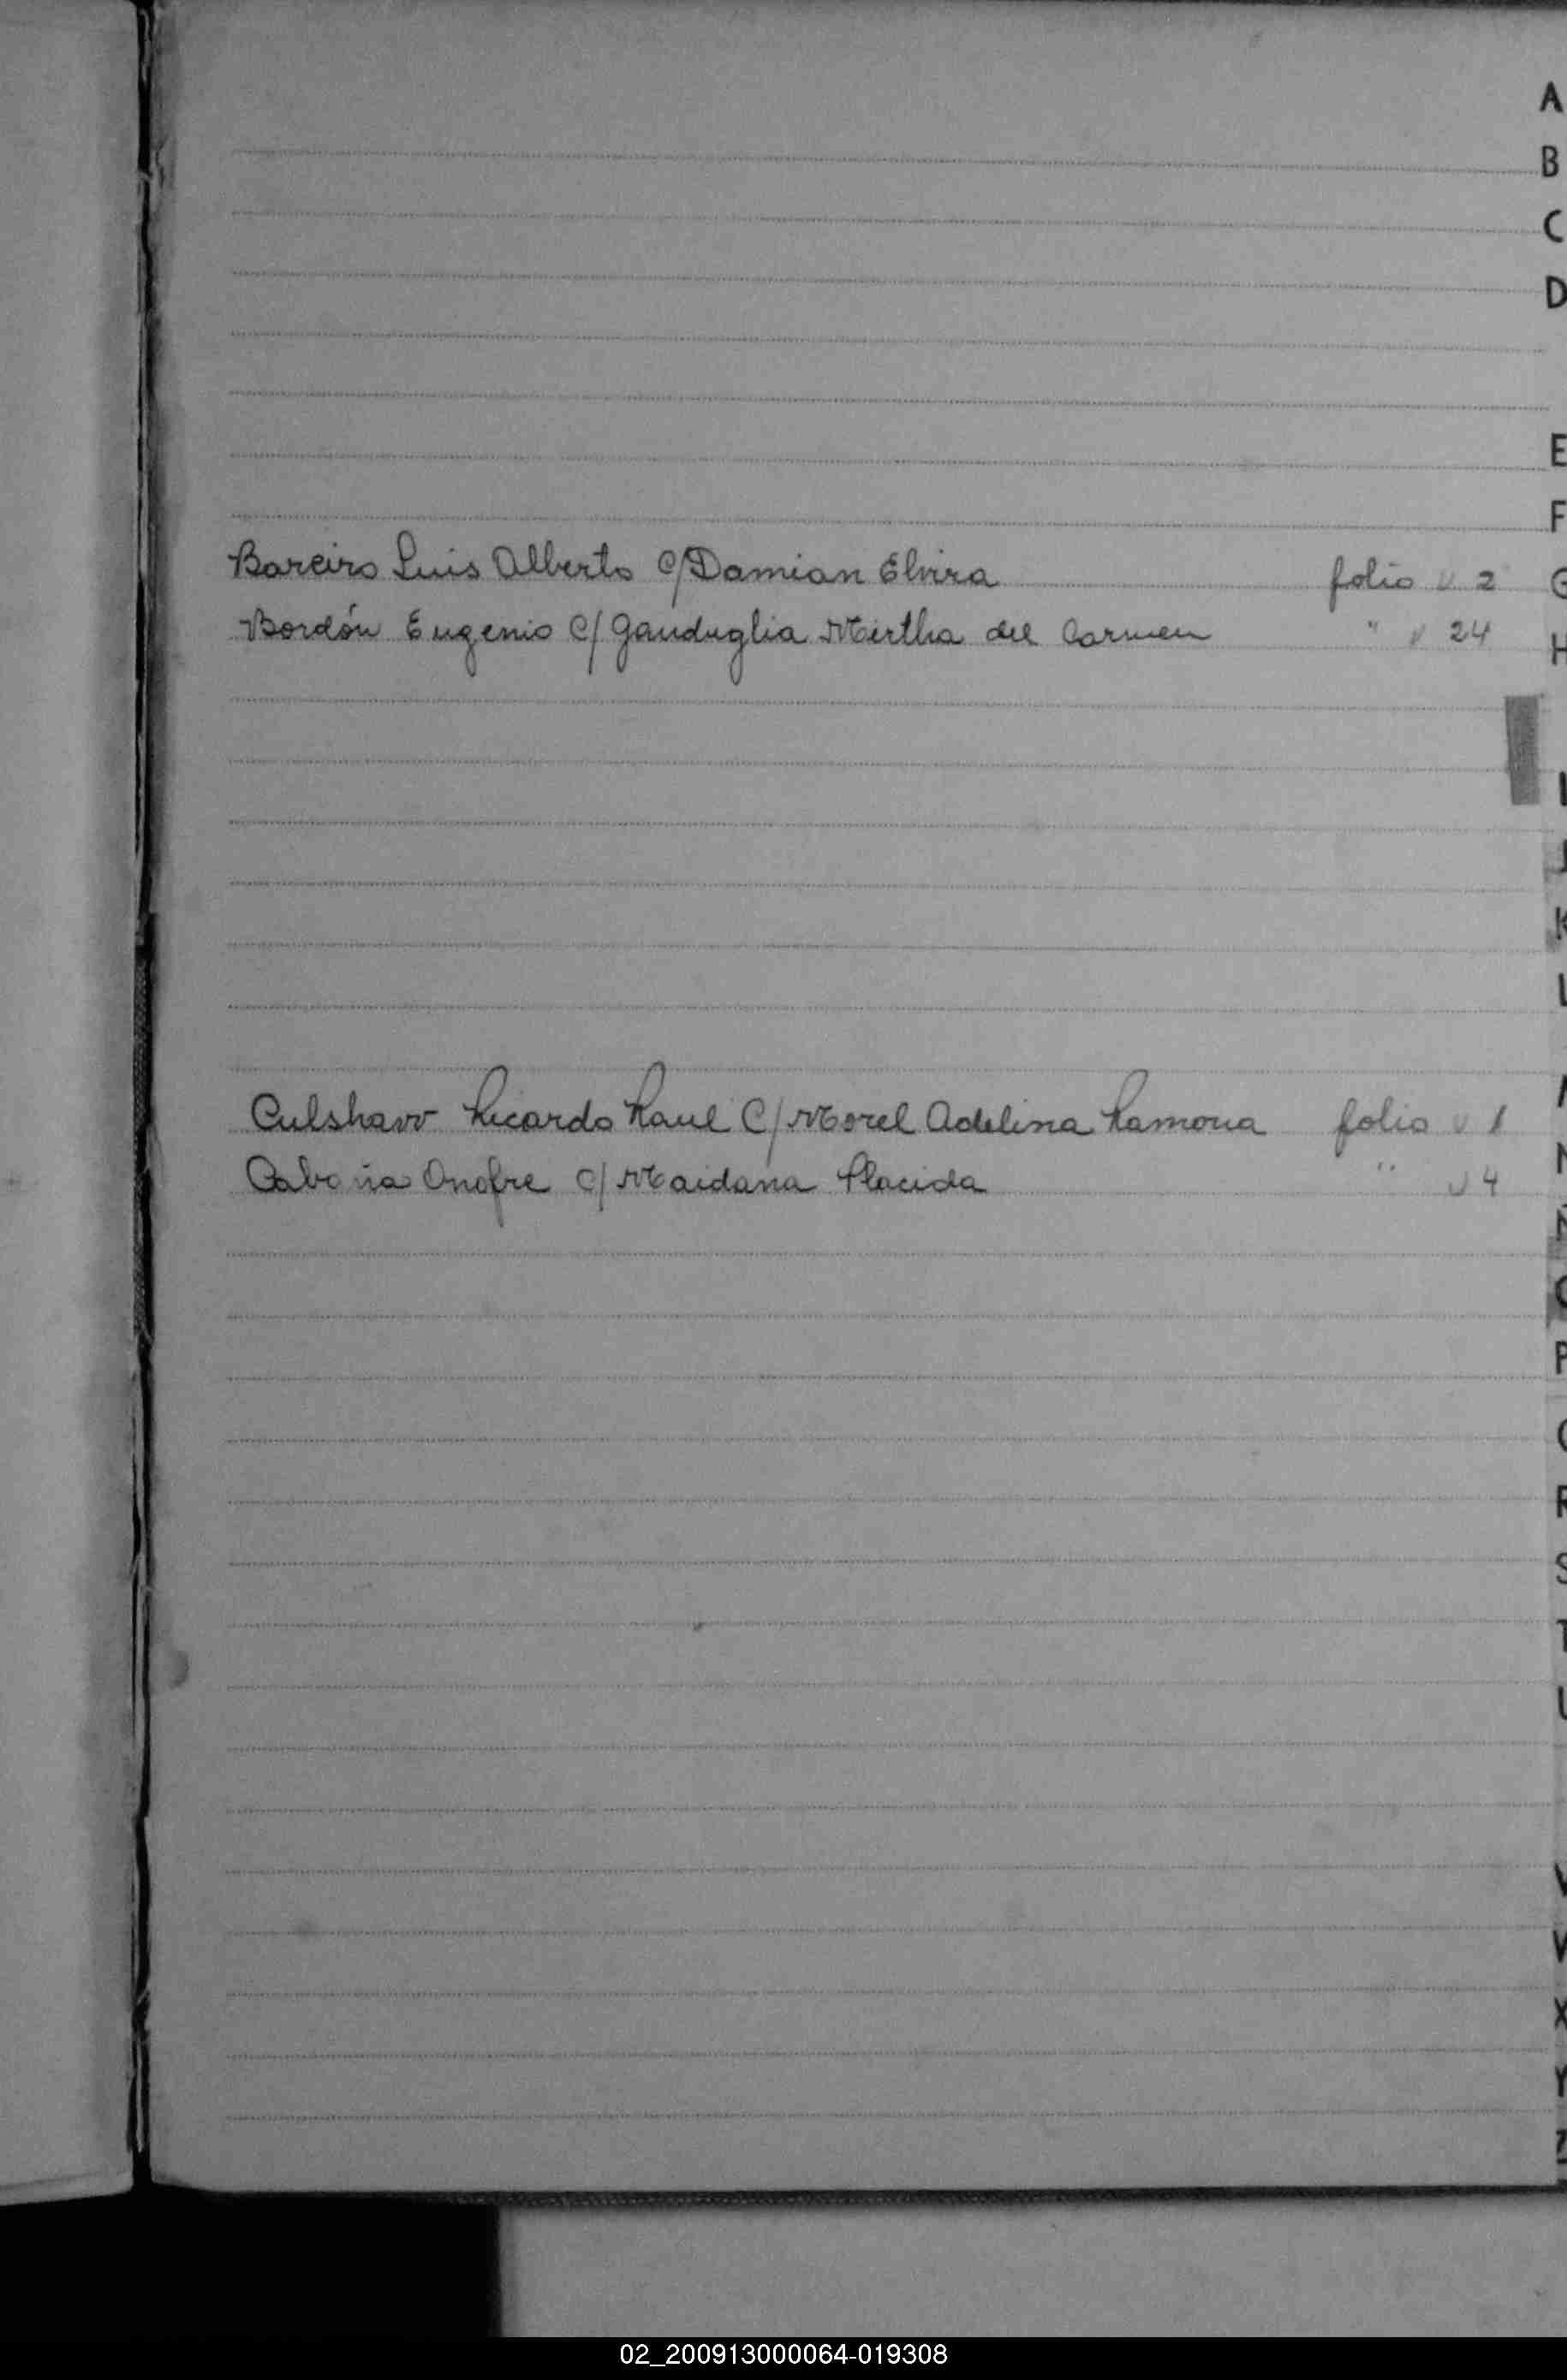 A
B
C
D
E
F
G
H
Bareiro Luis Alberto C/Damian Elvira folio v 2
Bordón Eugenio C/ Gauduglia Mirtha del Carmen " v 24
I
J
K
L
Culshaw Ricardo Raul C/ Morel Adelina Ramona folio v 1
Cabaña Onofre C/ Maidana Placida " v 4
M
N
Ñ
O
P
Q
R
S
T
U
V
W
X
Y
Z
02_200913000064-019308